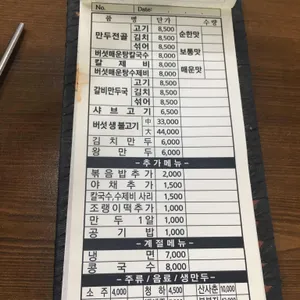 No. Date/
품 명 단가 수량
만두전골 고기 8,500 순한맛
김치 8,500
섞어 8,500 보통맛
버섯매운탕칼국수 8,000
칼제비 8,000 매운맛
버섯매운탕수제비 8,000
갈비만두국 고기 8,500
김치 8,500
섞어 8,500
샤브고기 6,500
버섯생불고기 中 33,000
大 44,000
김치만두 6,000
왕만두 6,000
- 추가메뉴 -
볶음밥추가 2,000
야채추가 1,500
칼국수,수제비 사리 1,500
조랭이떡추가 1,000
만두 1알 1,000
공기밥 1,000
- 계절메뉴 -
냉면 7,000
콩국수 8,000
- 주류/음료/생만두 -
소주 4,000 청하 4,500 산사춘 10,000